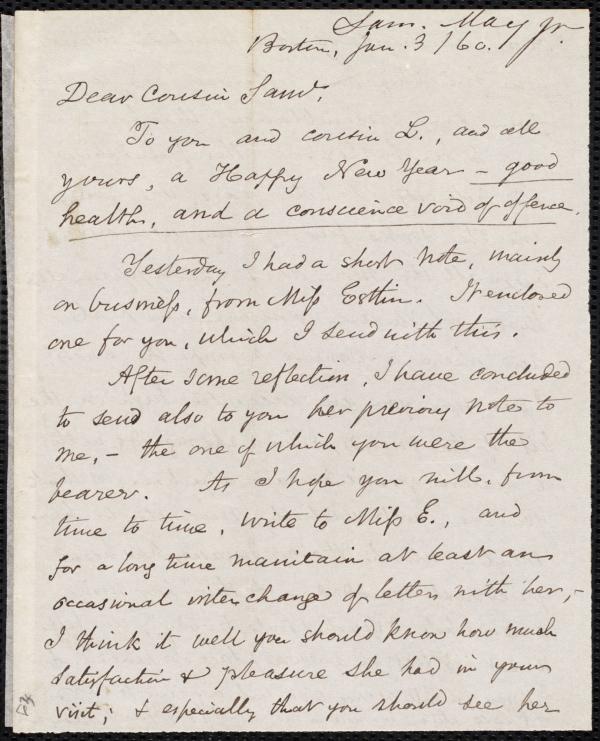 Sam. May Jr.
Boston, Jan. 3/60.
Dear Cousin Saml,
To you and cousin L., and all
yours, a Happy New Year – good
health, and a conscience void of offence.
Yesterday I had a short note, mainly
on business, from Miss Estlin. It enclosed
one for you, which I send with this.
After some reflection, I have concluded
to send also to you her previous note to
me, – the one of which you were the
bearer. As I hope you will, from
time to time, write to Miss E., and
for a long time maintain at least an
occasional interchange of letters with her, –
I think it well you should know how much
satisfaction & pleasure she had in your
visit; & especially that you should see her